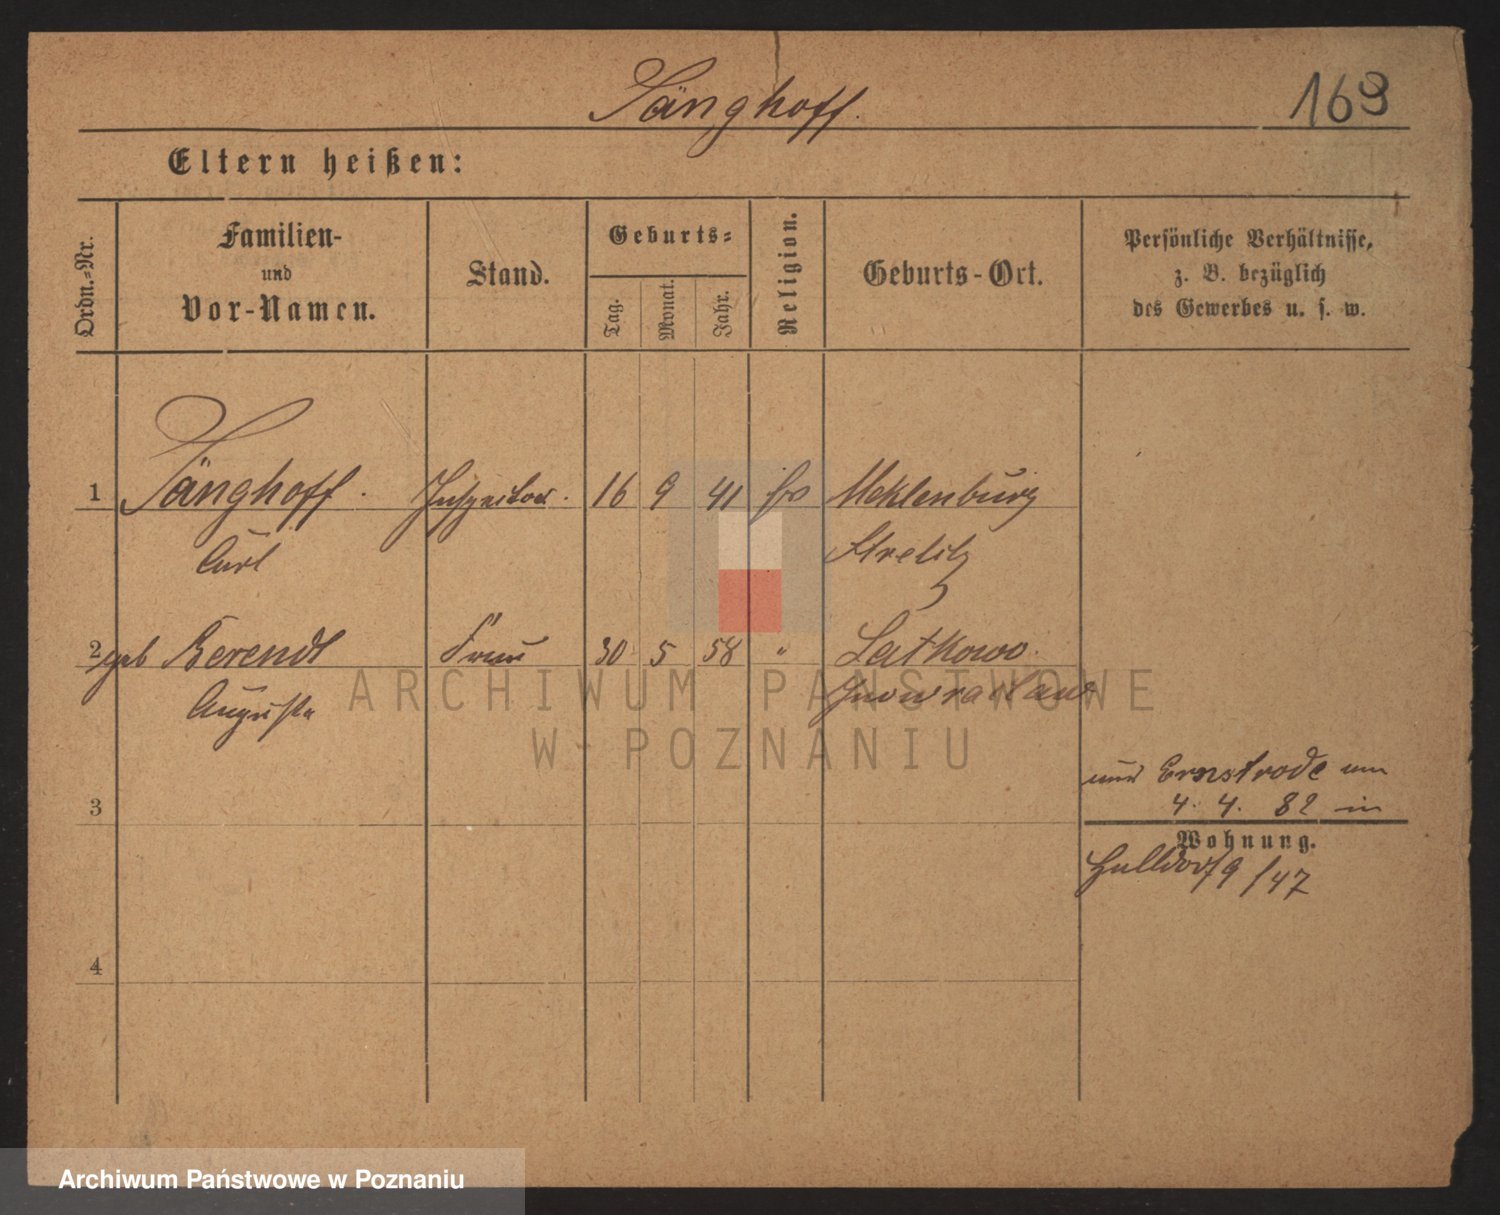 Sänghoff.
169
Eltern heißen:
Ordn.-Nr.
Familien-
und
Vor-Namen.
Stand.
Geburts-
Tag.
Monat.
Jahr.
Religion.
Geburts-Ort.
Persönliche Verhältnisse,
z. B. bezüglich
des Gewerbes u. s. w.
1 Sänghoff. Inspector. 16 9 41 Meklenburg
Carl Strelitz
2 geb Berendt Frau 30 5 58 " Latkowo
Auguste Inowraclaw
ARCHIWUM PAŃSTWOWE
W POZNANIU
Ernstrode
3 4. 4. 82 in
Wohnung.
9/47
4
Archiwum Państwowe w Poznaniu